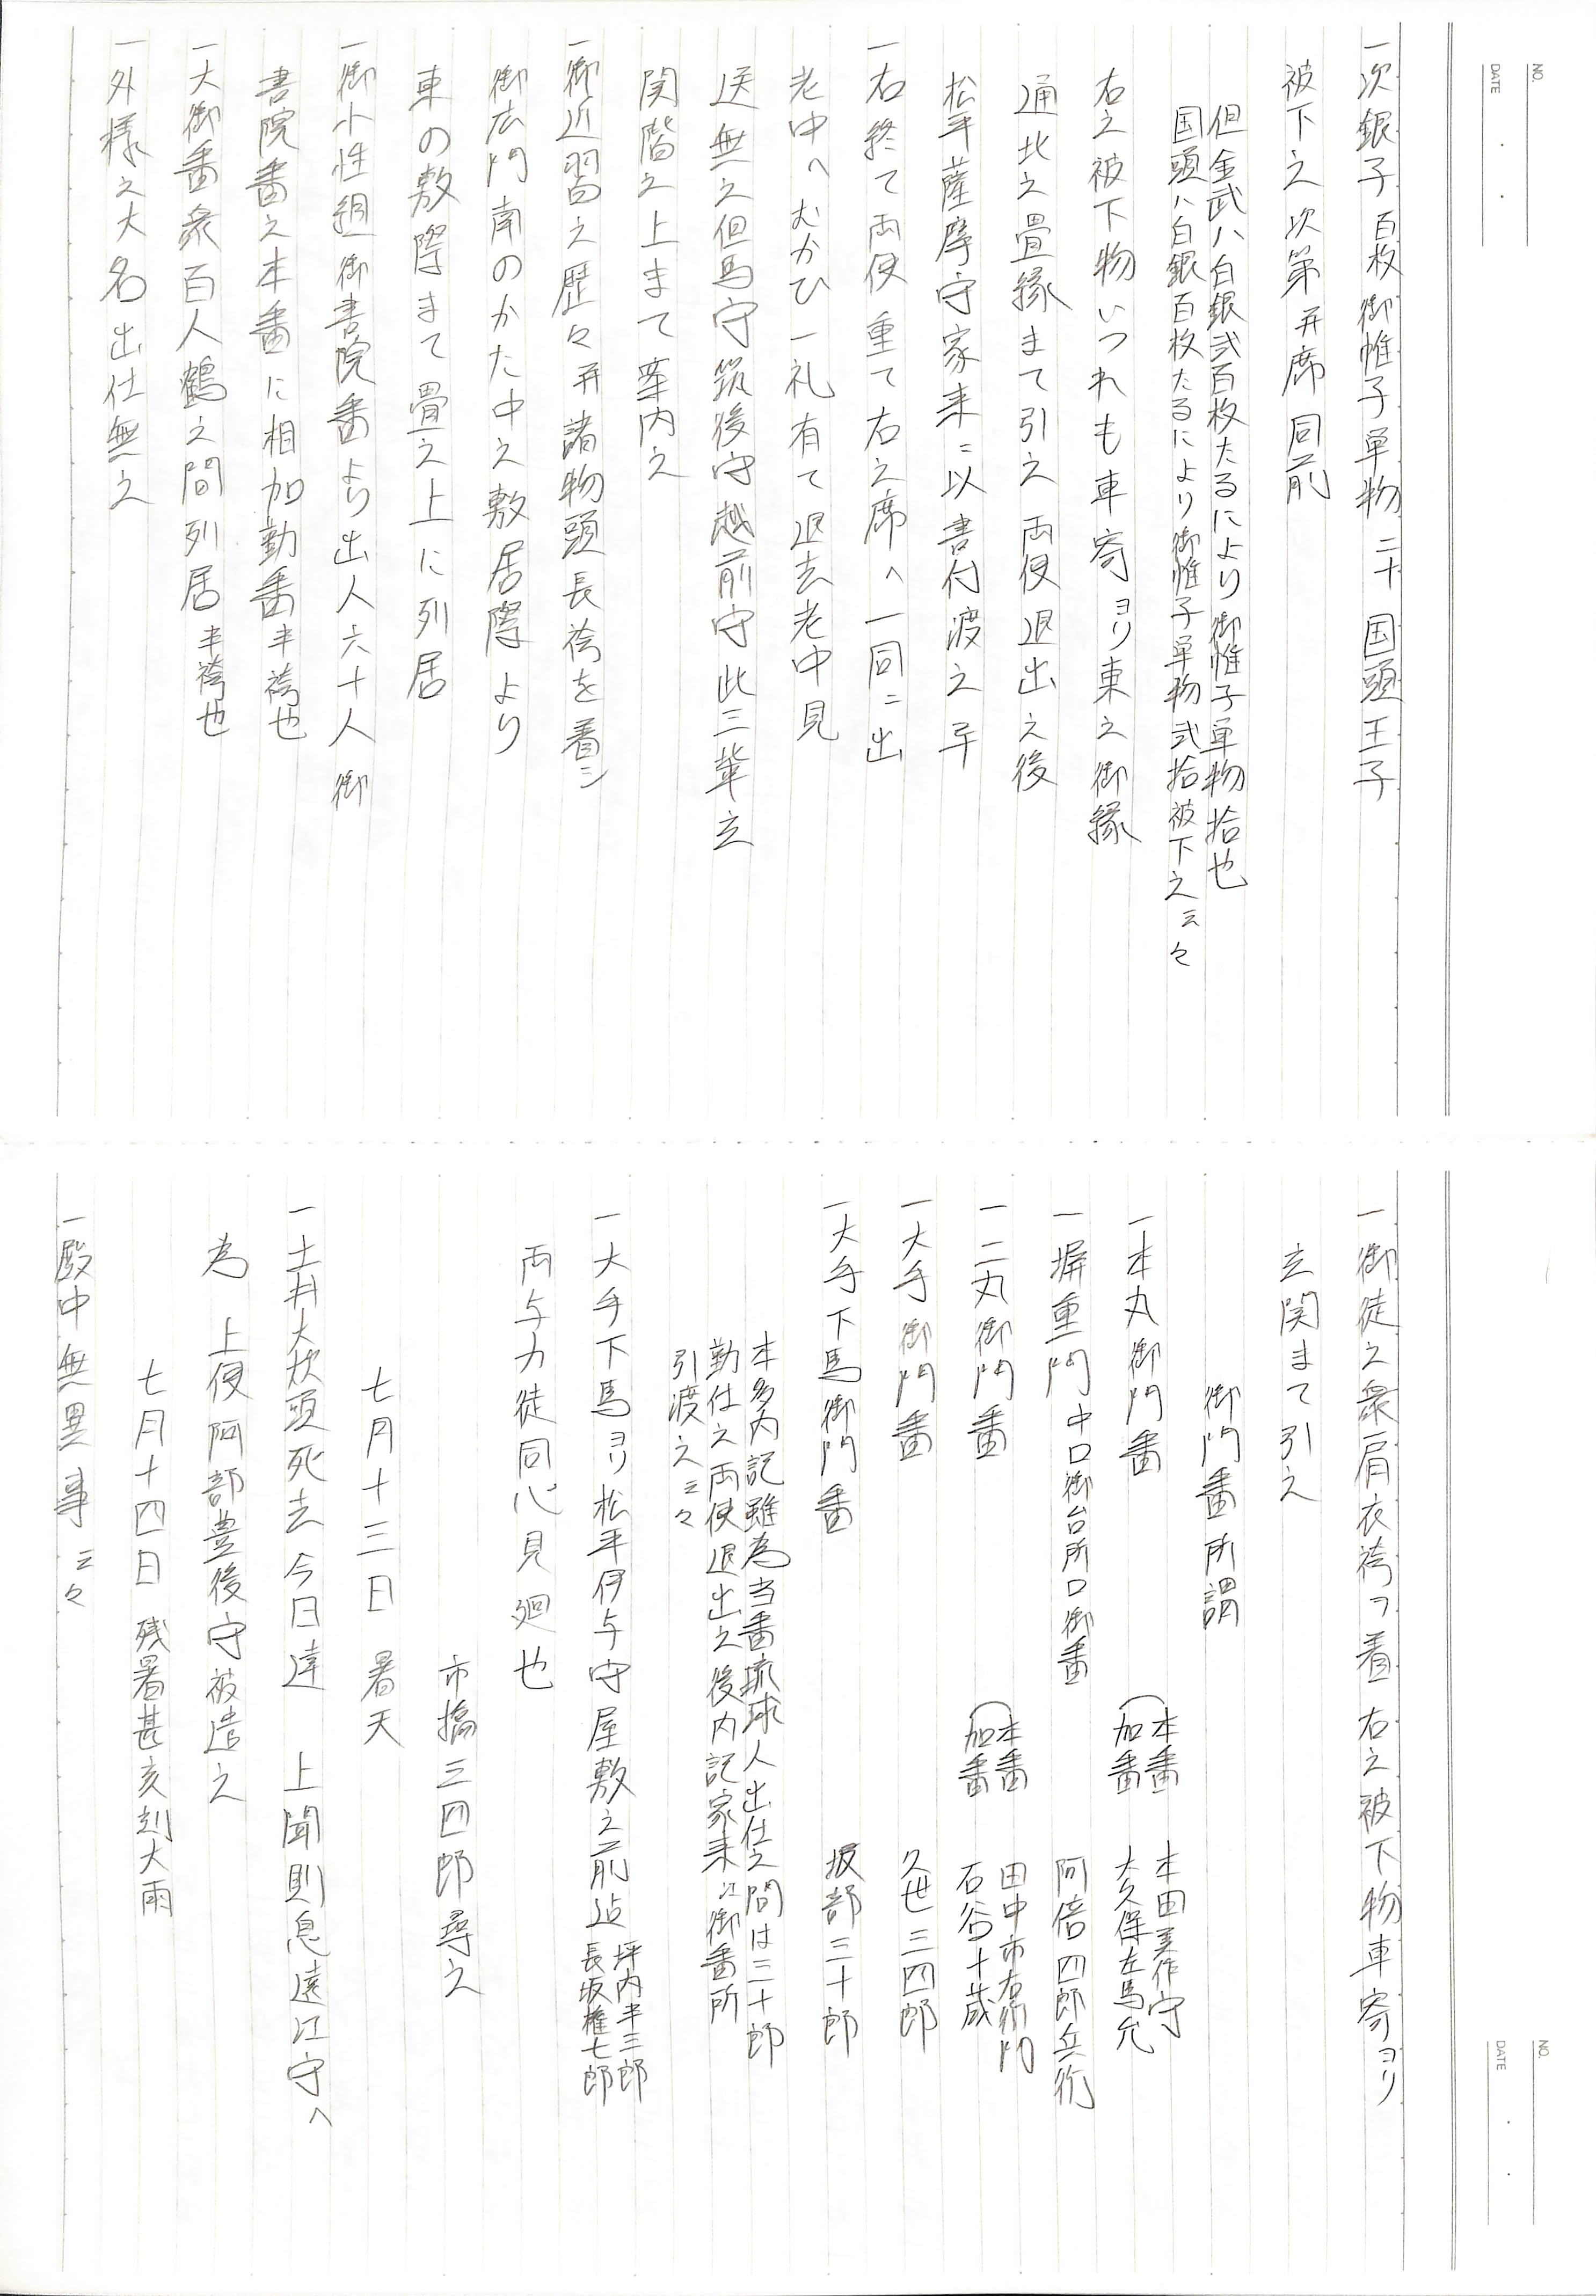 NO.
DATE
一次銀子百枚御帷子単物二十国頭王子
被下之次第并席同前
但金武ハ白銀弐百枚たるにより御帷子単物拾也
国頭ハ白銀百枚たるにより御帷子単物弐拾被下之云々
右之被下物いつれも車寄ヨリ東之御縁
通北之畳縁まて引之両使退出之後
松平薩摩守家来ニ以書付渡之畢
一右終て両使重て右之席へ一同ニ出
老中へむかひ一礼有て退去老中見
送無之但馬守筑後守越前守此三輩玄
関階之上まて案内之
一御近習之歴々并諸物頭長袴を着シ
御広門南のかた中之敷居際より
車の敷際まて畳之上に列居
一御小性組御書院番より出人六十人御
書院番之本番に相加勤番半袴也
一大御番衆百人鶴之間列居半袴也
一外様之大名出仕無之
NO.
DATE
一御徒之衆肩衣袴ヲ着右之被下物車寄ヨリ
玄関まて引之
御門番所謂
一本丸御門番 本番 本田美作守
加番 大久保左馬允
一塀重門中口御台所口御番 阿倍四郎兵衛
一二丸御門番 本番 田中市右衛門
加番 石谷十蔵
一大手御門番 久世三四郎
一大手下馬御門番 坂部三十郎
本多内記雖為当番琉球人出仕之間は三十郎
勤仕之両使退出之後内記家来江御番所
引渡之云々
一大手下馬ヨリ松平伊与守屋敷之前迠 坪内半三郎
長坂権七郎
両与力徒同心見廻也
市橋三四郎尋之
七月十三日 暑天
一土井大炊頭死去今日達 上聞則息遠江守へ
為 上使阿部豊後守被遣之
七月十四日 残暑甚亥刻大雨
一殿中無異事云々